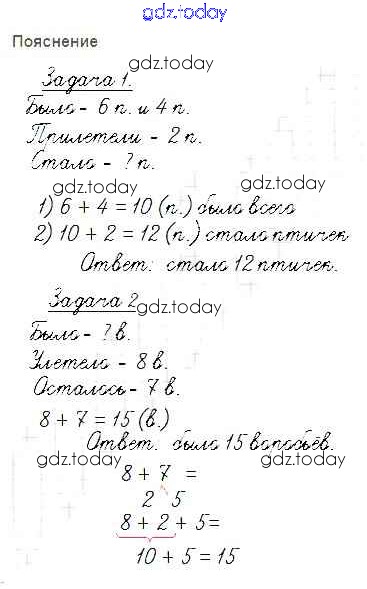 gdz.today
Пояснение
gdz.today
Задача 1.
Было - 6 п. и 4 п.
gdz.today
Прилетели - 2 п.
Стало - ? п.
gdz.today
gdz.today
1) 6 + 4 = 10 (п.) было всего
2) 10 + 2 = 12 (п.) стало птичек
Ответ: стало 12 птичек.
Задача 2
gdz.today
Было - ? в.
Улетело - 8 в.
gdz.today
Осталось - 7 в.
8 + 7 = 15 (в.)
Ответ: было 15 воробьёв.
gdz.today
gdz.today
8 + 7 =
2 5
8 + 2 + 5=
10 + 5 = 15